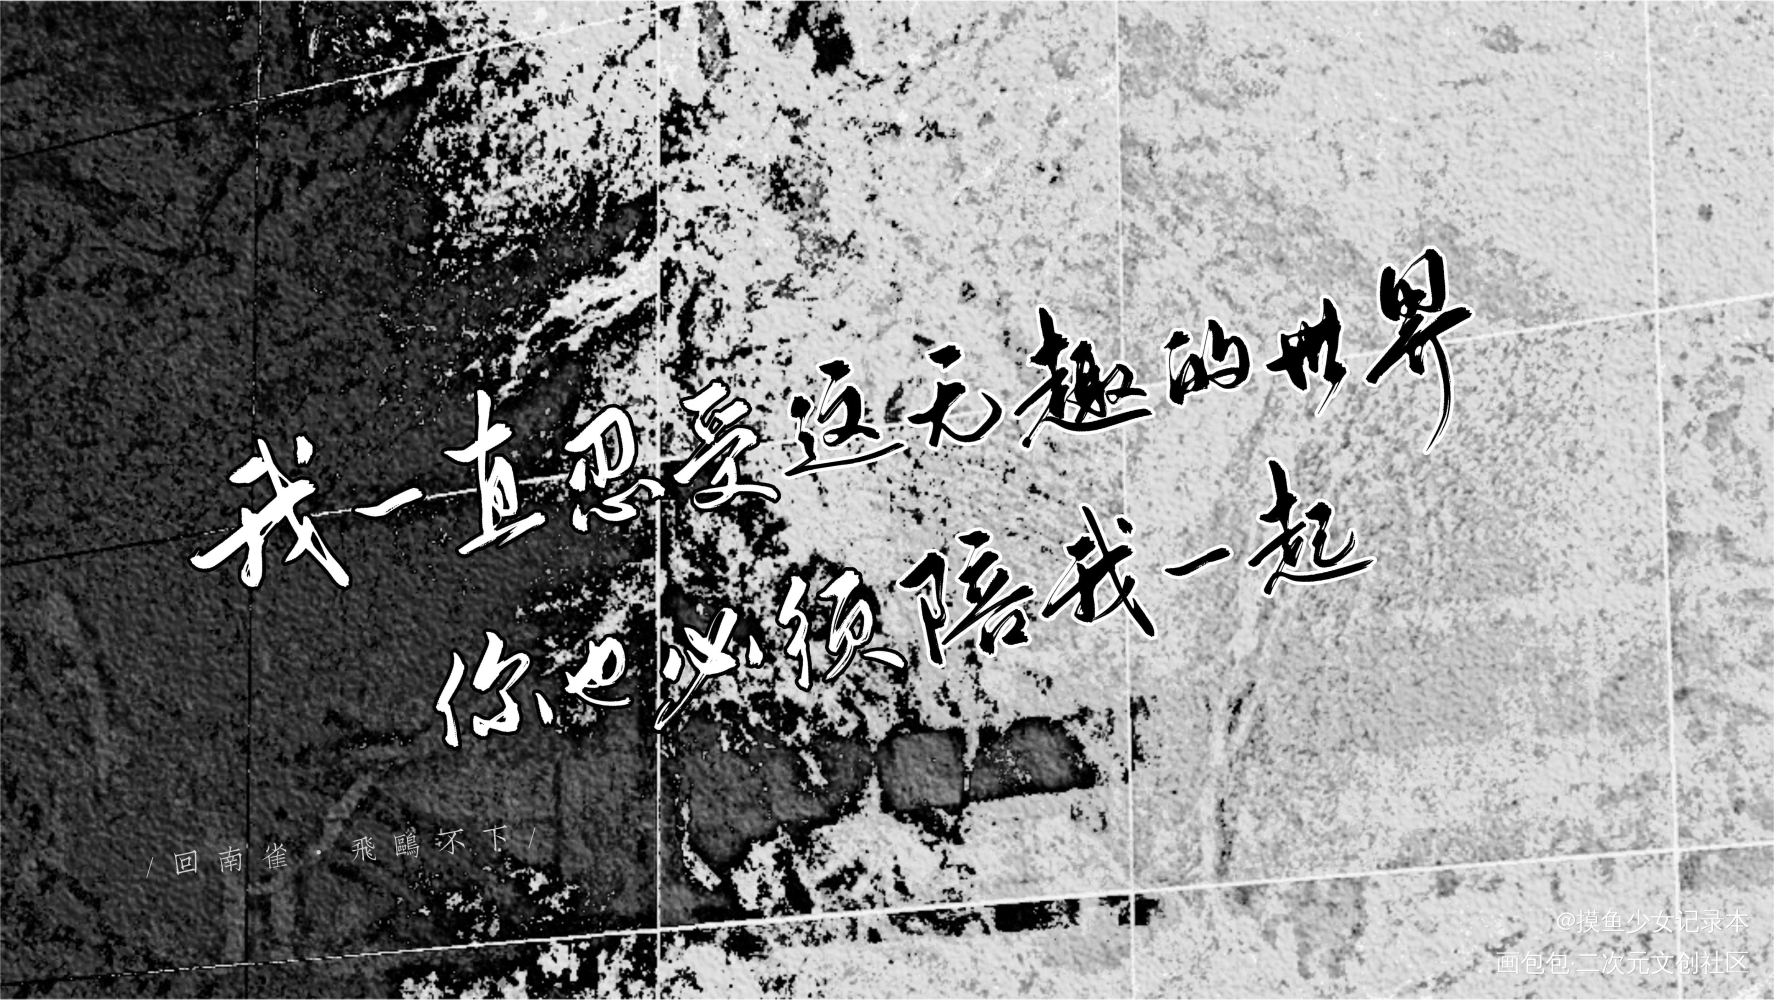 我一直忍受这无趣的世界
你也必须陪我一起
/回南雀·飛鷗不下/
@摸鱼少女记录本
画包包·二次元文创社区